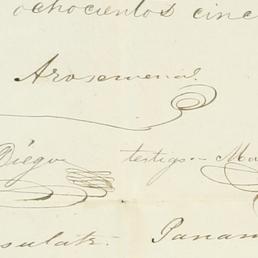 ochocientos cinc
Arosemena
Diego testigo - Ma
sulate. Panam